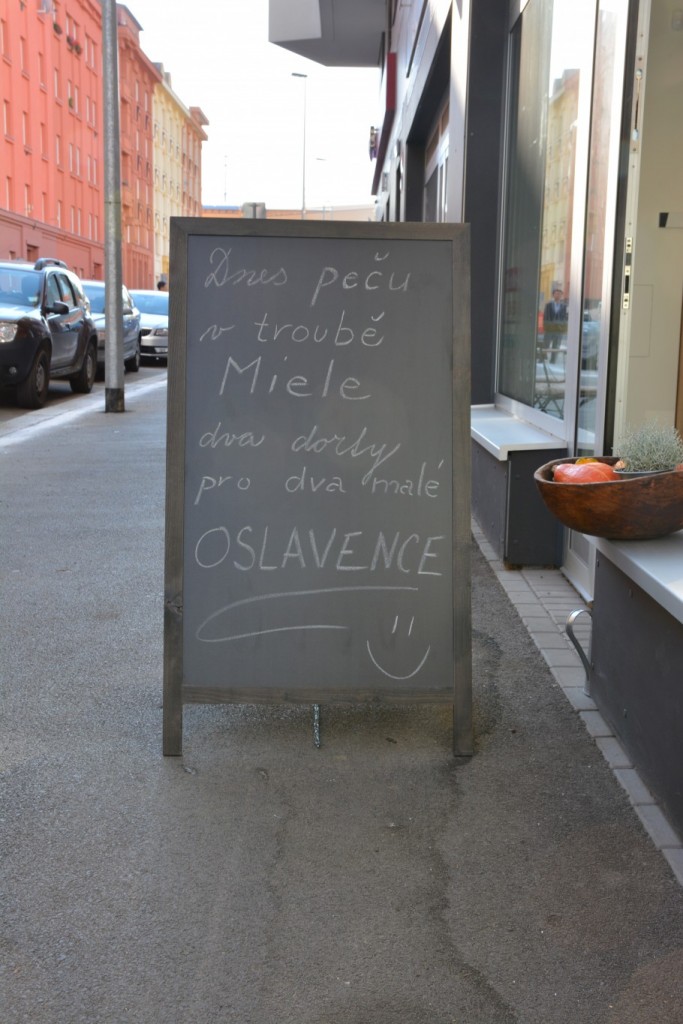 Dnes peču
v troubě
Miele
dva dorty
pro dva malé
OSLAVENCE